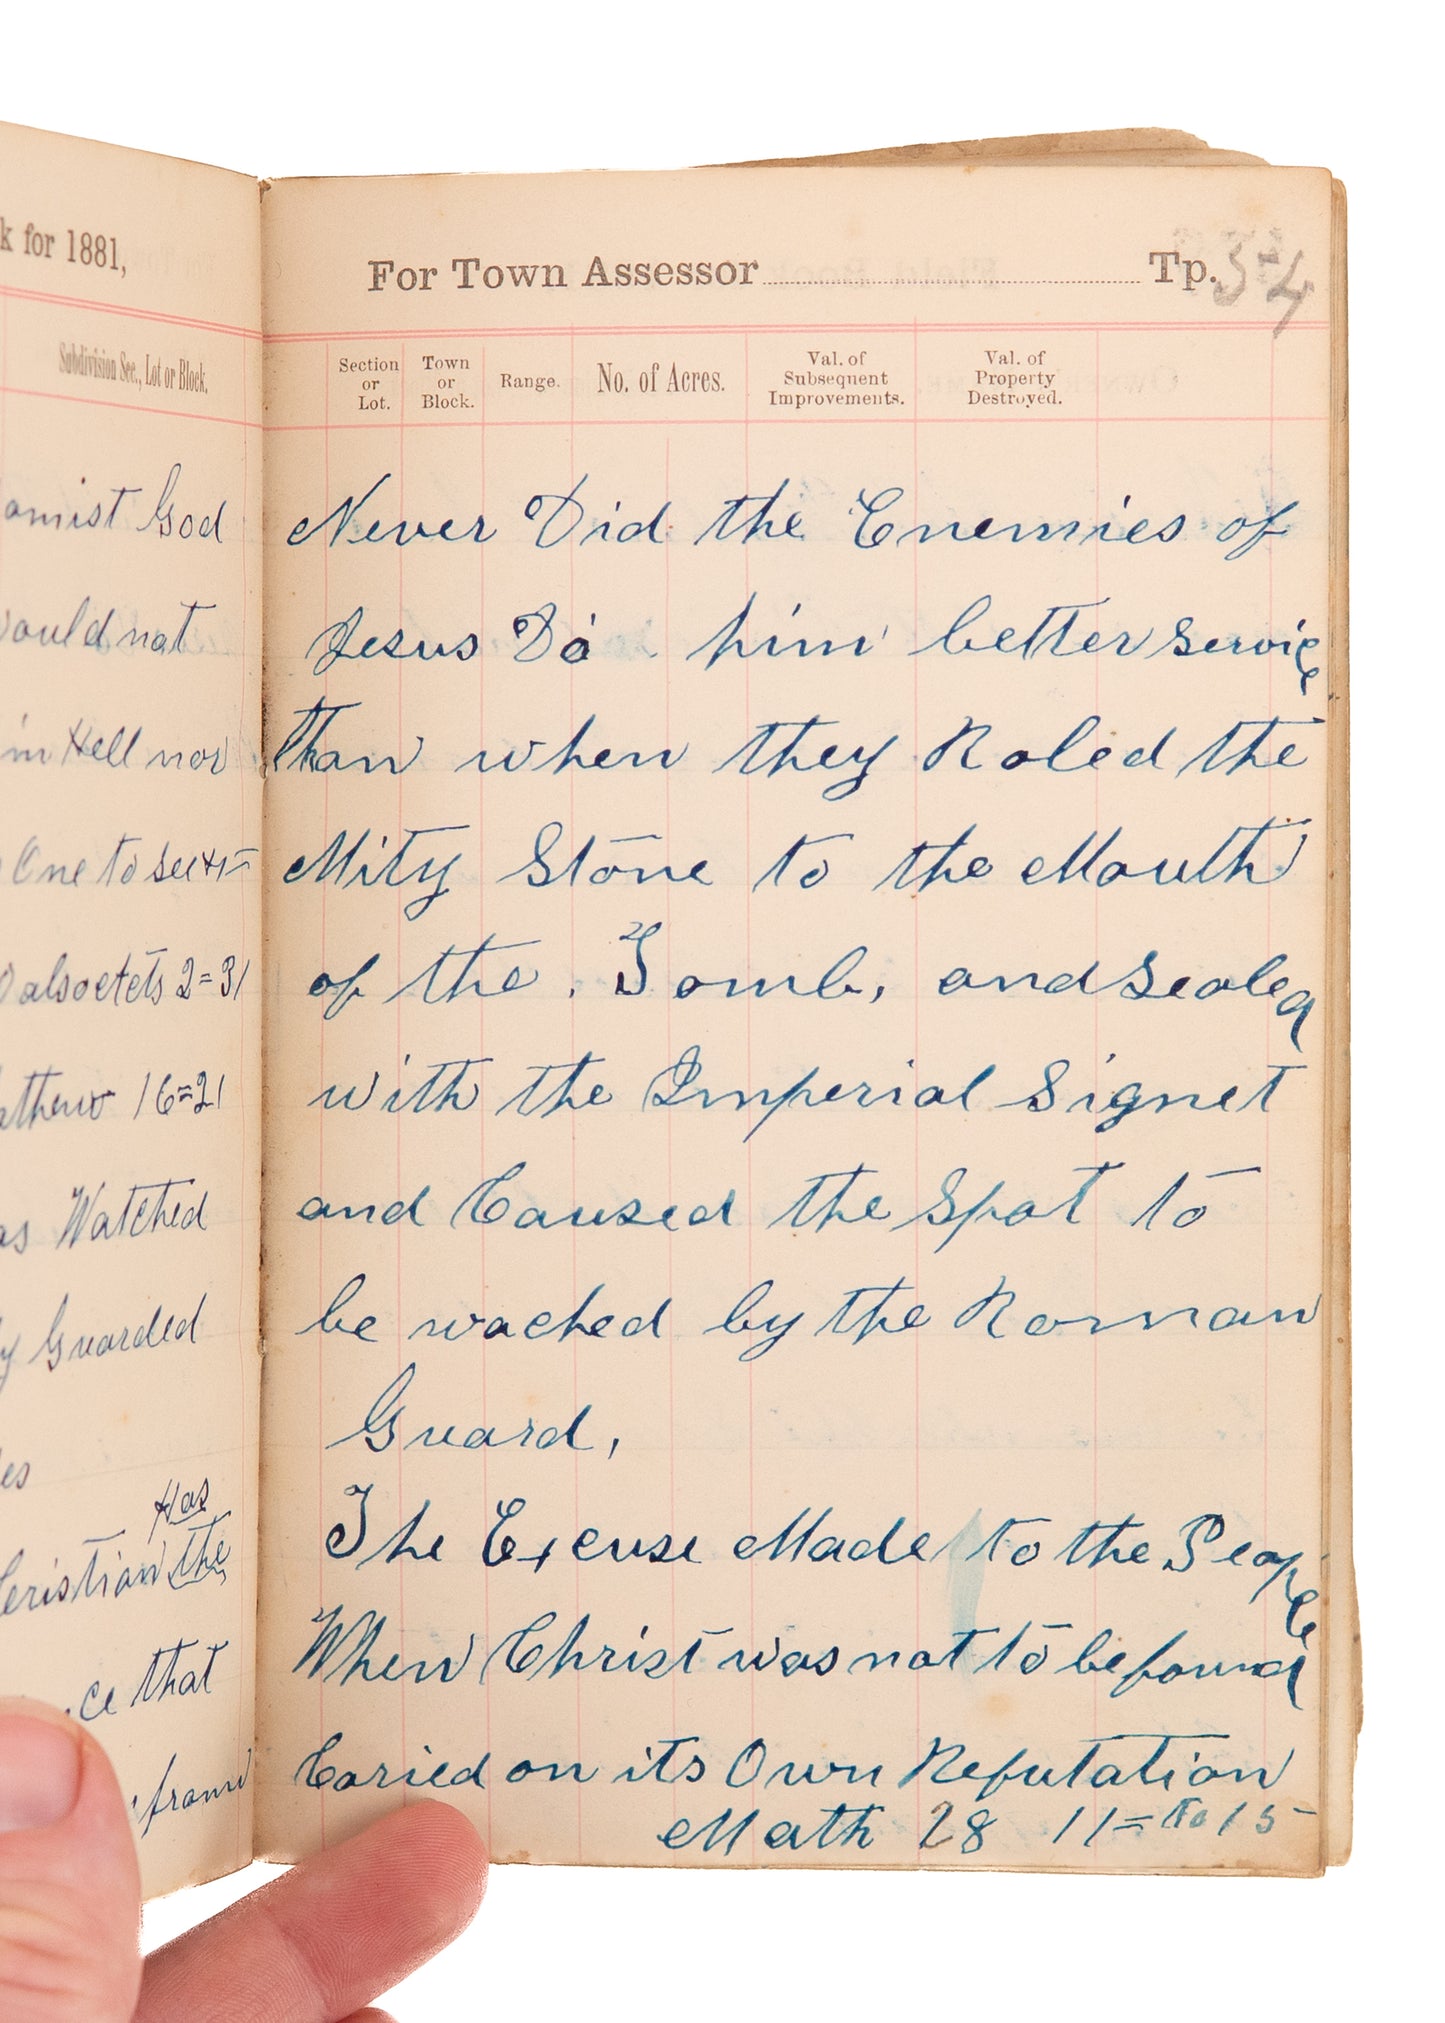 k for 1881,
Subdivision Sec., Lot or Block.
omist God
would not
in Hell nor
One to see
also 2=31
athew 16=21
as Watched
y Guarded
es
Has
Cristian the
ce that
from
For Town Assessor Tp. 54
Section or Lot.
Town or Block.
Range.
No. of Acres.
Val. of Subsequent Improvements.
Val. of Property Destroyed.
Never Did the Enemies of
Jesus Do him better Service
than when they Roled the
Mity Stone to the Mouth
of the Tomb, and Sealed
with the Imperial Signet
and Caused the Spot to
be wached by the Roman
Guard,
The Excuse Made to the People
When Christ was not to be found
Caried on its Own Reputation
Math 28 11= to 15